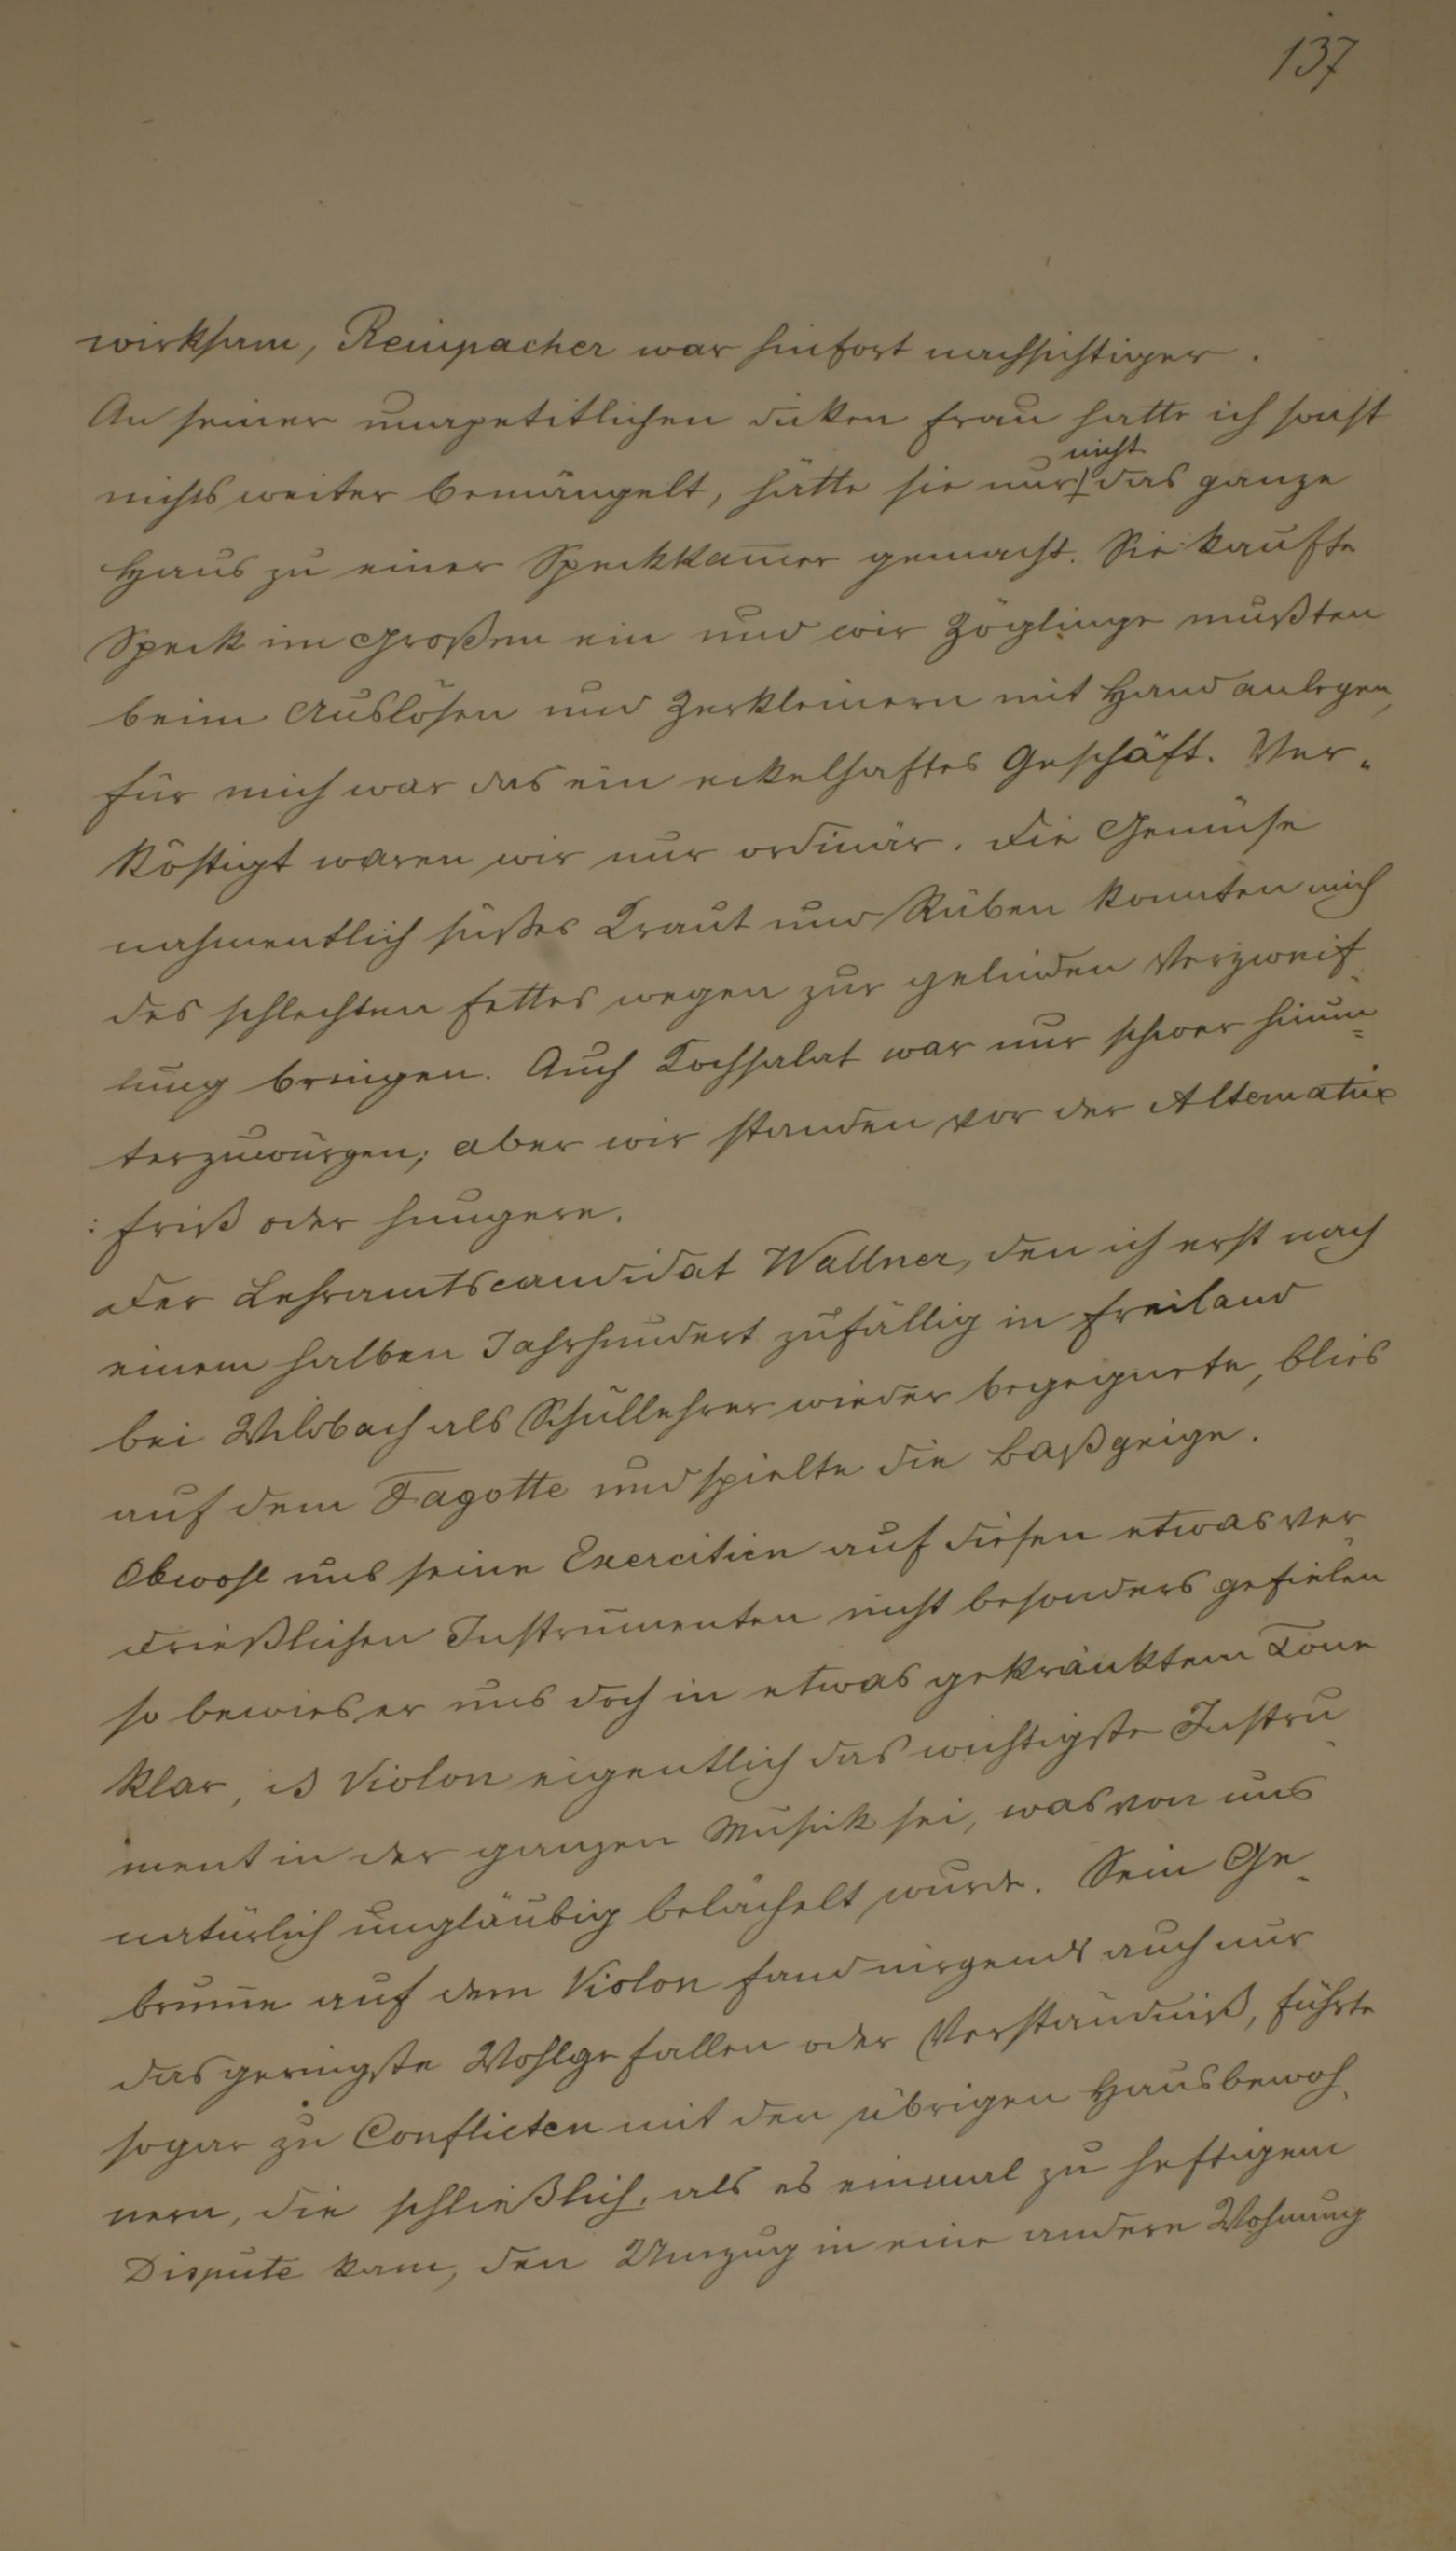 137
wirksam, Reinpacher war hinfort nachsichtiger.
An seiner unapetitlichen dicken Frau hatte ich sonst
nicht
nichts weiter bemängelt, hätte sie nur das ganze
Haus zu einer Speckkam̅er gemacht. Sie kaufte
Speck im Großen ein und wir Zöglinge mußten
beim Auslösen und Zerkleinern mit Hand anlegen,
für mich war das ein eckelhaftes Geschäft. Ver-
köstigt waren wir nur ordinär. Die Gemüse
nahmentlich süßes Kraut und Rüben konnten mich
des schlechten Fettes wegen zur gelinden Verzweif-
lung bringen. Auch Kochsalat war nur schwer hinun-
terzuwürgen; aber wir standen vor der Alternative
: friß oder hungere.
Der Lehramtscandidat Wallner, den ich erst nach
einem halben Jahrhundert zufällig in Freiland
bei Wildbach als Schullehrer wieder begegnete, blies
auf dem Fagotte und spielte die Baßgeige.
Obwohl uns seine Exercitien auf diesen etwas ver-
drießlichen Instrumenten nicht besonders gefielen
so bewies er uns doch in etwas gekränktem Tone
klar, is Violon eigentlich das wichtigste Instru-
ment in der ganzen Musik sei, was von uns
natürlich ungläubig belächelt wurde. Sein Ge-
brum̅e auf dem Violon fand nirgends auch nur
das geringste Wohlgefallen oder Verständniß, führte
sogar zu Conflicten mit den übrigen Hausbewoh-
nern, die schließlich, als es einmal zu heftigem
Dispute kam, den Umzug in eine andere Wohnung